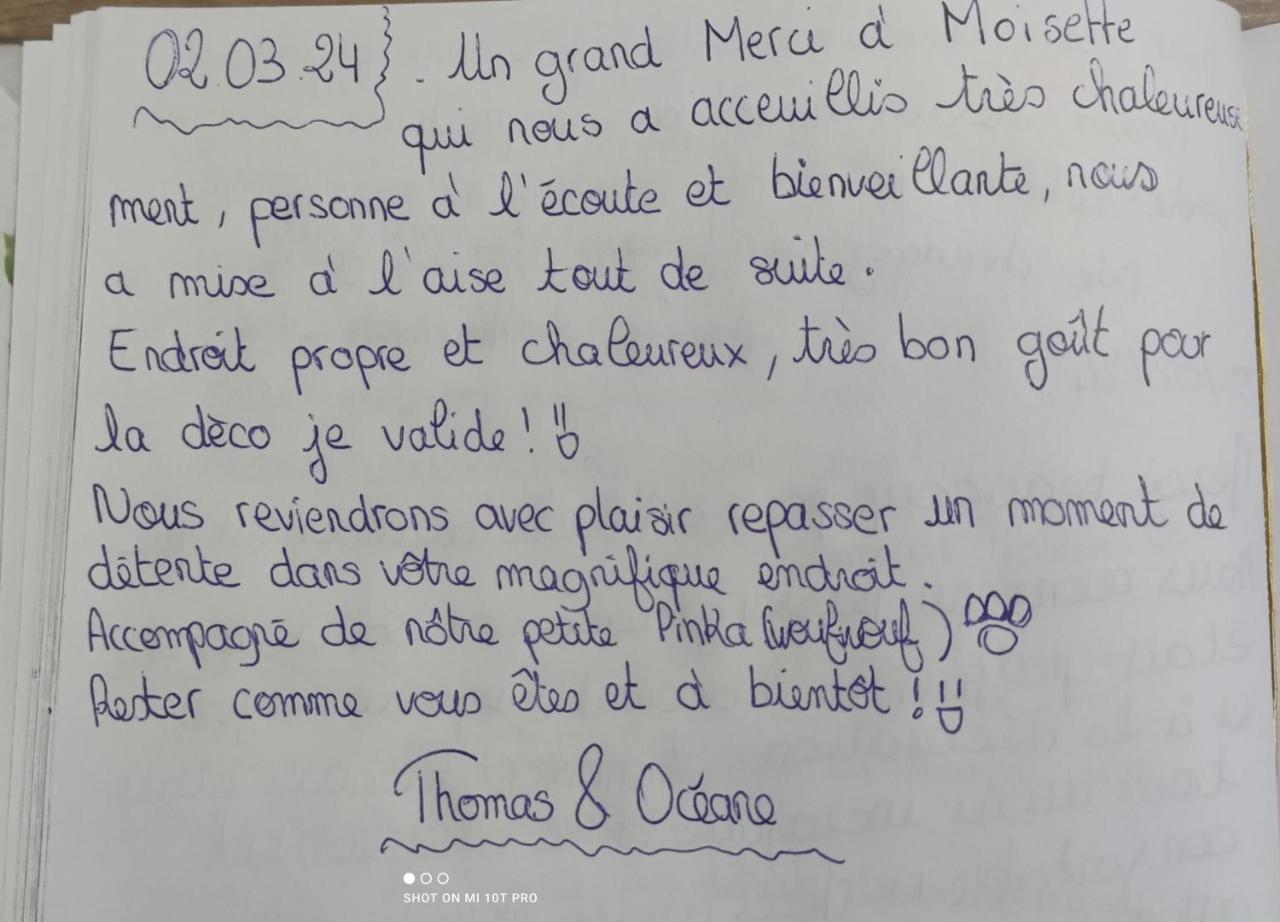 02.03.24 . Un grand Merci à Moisette
qui nous a acceuillis très chaleureuse
ment, personne à l'écoute et bienveillante, nous
a mise à l'aise tout de suite.
Endroit propre et chaleureux, très bon goût pour
la dèco je valide !
Nous reviendrons avec plaisir repasser un moment de
détente dans vôtre magnifique endroit.
Accompagné de nôtre petite Pinka (woufwouf)
Rester comme vous êtes et à bientôt !
Thomas & Océane
SHOT ON MI 10T PRO